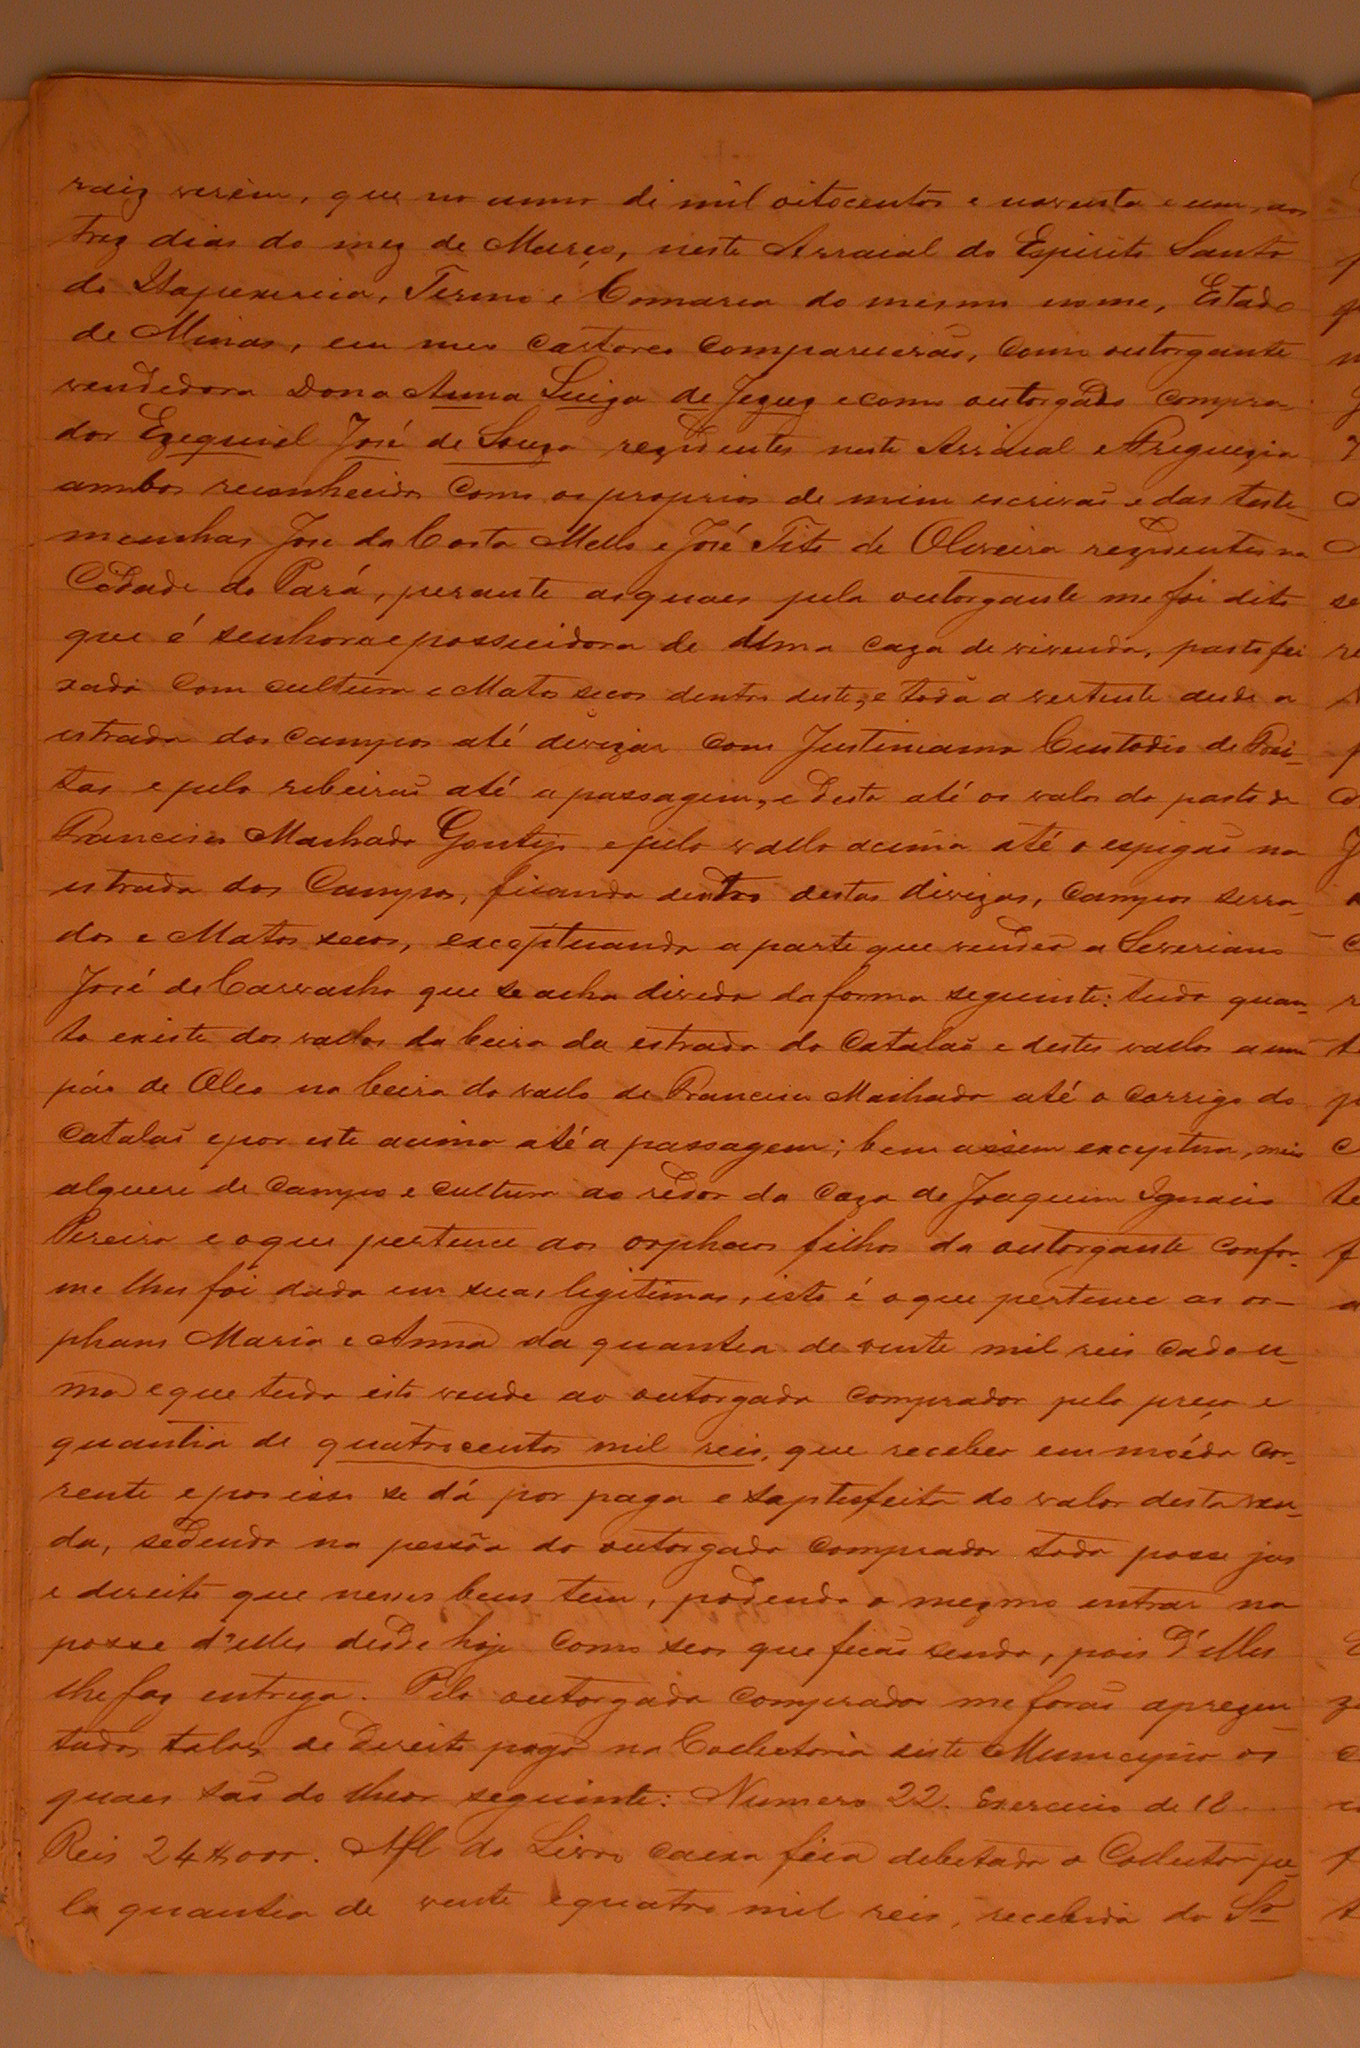 raiz verêm, que no anno de mil oitocentos e noventa e um, aos
trez dias do mez de Março, neste Arraial do Espirito Santo
do Itapecerica, Termo e Comarca do mesmo nome, Estado
de Minas, em meo cartoreo comparecerão, como outorgante
vendedora Dona Anna Luiza de Jezuz e como outorgado compra-
dor Ezequiel José de Souza rezidentes neste Arraial e Freguezia
ambos reconhecidos como os proprios de mim escrivaõ e das teste-
meunhas Jose da Costa Mello e José Tito de Oliveira rezidentes na
Cidade do Pará, perante as quaes pela outorgante me foi dito
que é senhora e possuidora de uma caza de vivenda, pasto fei
xado com cultura e Matos secos dentro deste, e toda a vertente desde a
estrada dos campos até devizar com Justiniano Custodio de Frei-
tas e pelo ribeiraõ até a passagem, e desta até os valos do pasto de
Francisco Machado Gontijo e pelo vallo acima até o espigaõ na
estrada dos Campos, ficando dentro destas divizas, campos serra-
dos e Matos secos, exceptuando a parte que vendeo a Severiano
José de Carvalho que se acha divedo da forma seguinte: tudo quan-
to existe dos vallos da beira da estrada do Catalaõ e destes vallos a um
páo de Oleo na beira do vallo de Francisco Machado até o corrigo do
Catalaõ e por este acima até a passagem; bem assim exceptua, meio
alquere de campo e cultura ao redor da caza de Joaquim Ignacio
Pereira e o que pertence aos orphaos filhos da outorgante confor-
me lhes foi dado em suas legitimas, isto é o que pertence as or-
phans Maria e Anna da quantea de vente mil reis cada u-
ma e que tudo isto vende ao outorgado comprador pelo preço e
quantia de quatrocentos mil reis, que recebeo em moéda cor-
rente e por isso se dá por paga e saptesfeita do valor desta ven-
da, sedendo na pessôa do outorgado comprador toda posse jus
e direito que nesses bens tem, podendo o mezmo entrar na
posse d'elles desde hoje como seos que ficaõ sendo, pois d'elles
lhe faz entrega. Pelo outorgado comprador me foraõ aprezen-
tados talões de direito pago na Collectoria deste Municipio os
quaes saõ do theor seguinte: Numero 22. Exercicio de 18
Reis 24$000. Afl do Livro caixa fica debitado o Collector pe-
la quantea de vente e quatro mil reis, recebida do Sr